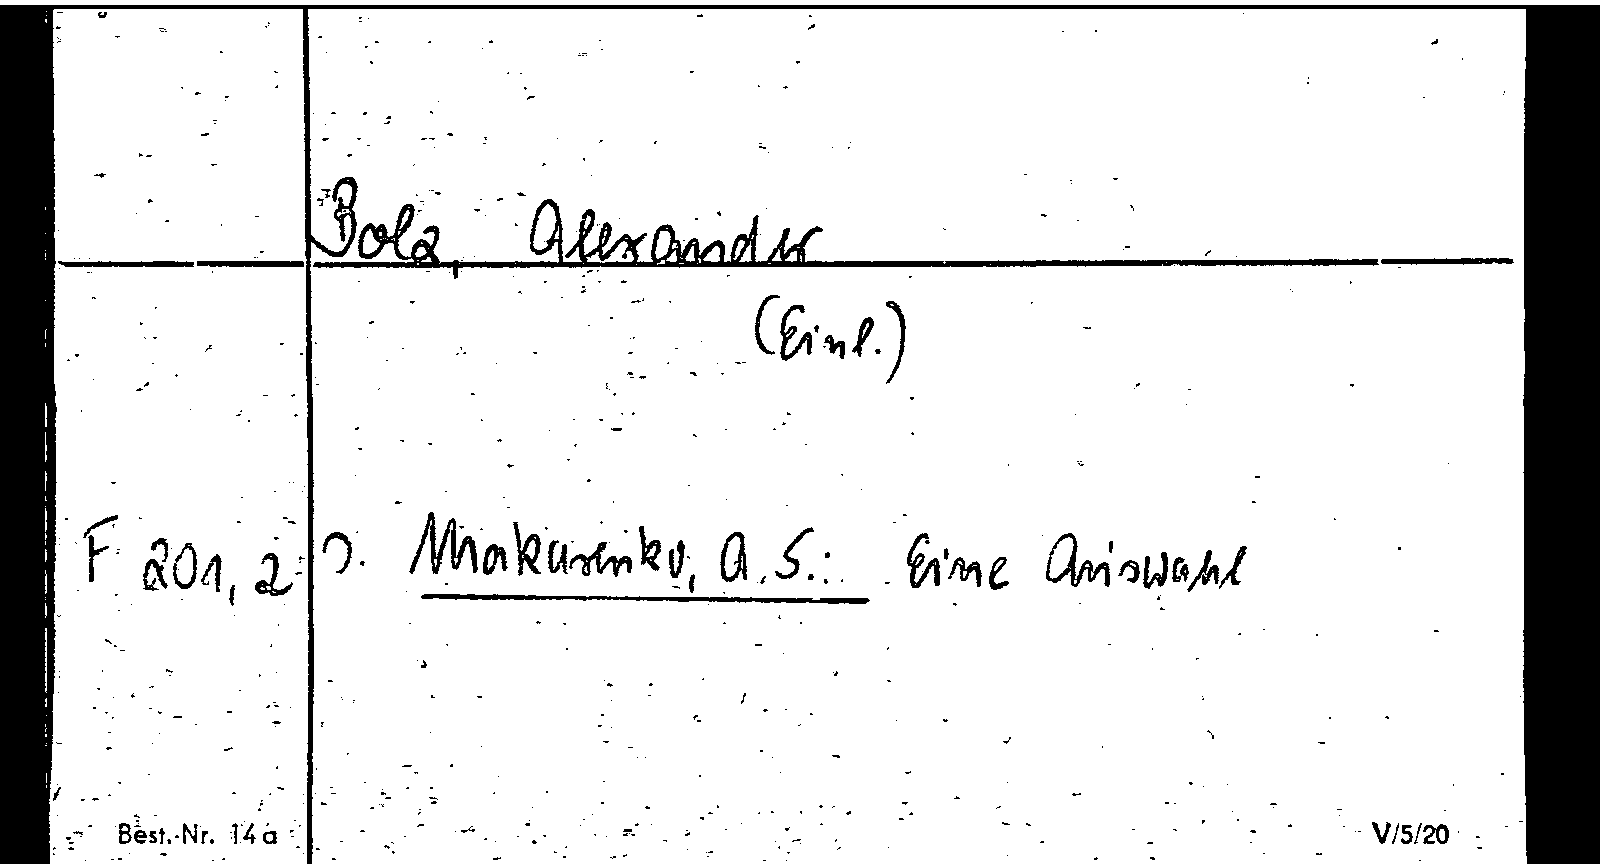 Bolz, Alexander
(Einl.)
F 201,2 s. Makarenko, A.S.: Eine Auswahl
Best.-Nr. 14a V/5/20